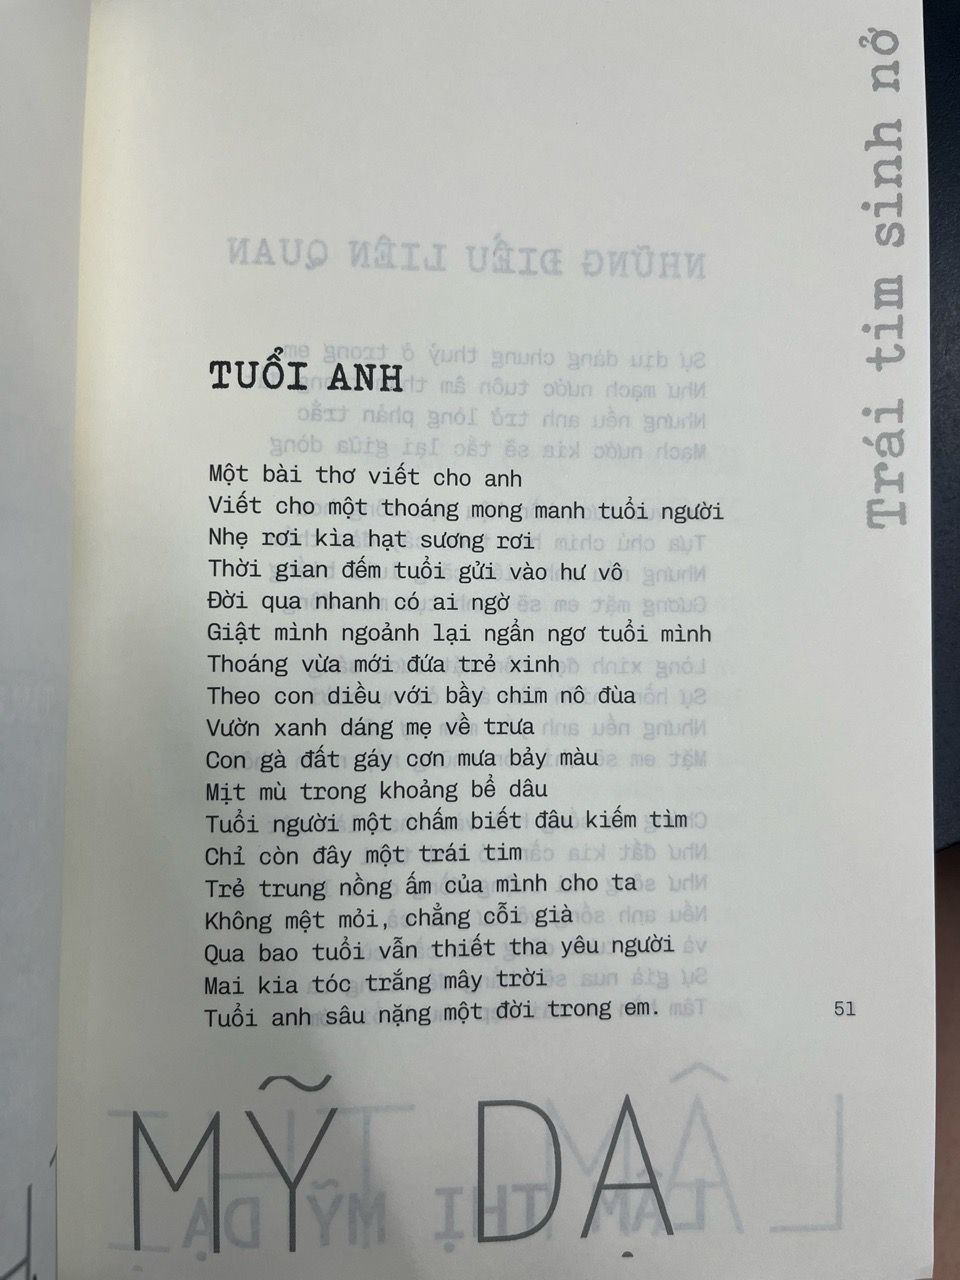 Trái tim sinh nở
NHỮNG ĐIỀU LIÊN QUAN
TUỔI ANH
Một bài thơ viết cho anh
Viết cho một thoáng mong manh tuổi người
Nhẹ rơi kìa hạt sương rơi
Thời gian đếm tuổi gửi vào hư vô
Đời qua nhanh có ai ngờ
Giật mình ngoảnh lại ngẩn ngơ tuổi mình
Thoáng vừa mới đứa trẻ xinh
Theo con diều với bầy chim nô đùa
Vườn xanh dáng mẹ về trưa
Con gà đất gáy cơn mưa bảy màu
Mịt mù trong khoảng bể dâu
Tuổi người một chấm biết đâu kiếm tìm
Chỉ còn đây một trái tim
Trẻ trung nồng ấm của mình cho ta
Không mệt mỏi, chẳng cỗi già
Qua bao tuổi vẫn thiết tha yêu người
Mai kia tóc trắng mây trời
Tuổi anh sâu nặng một đời trong em.
51
MỸ DẠ
LÂM THỊ MỸ DẠ